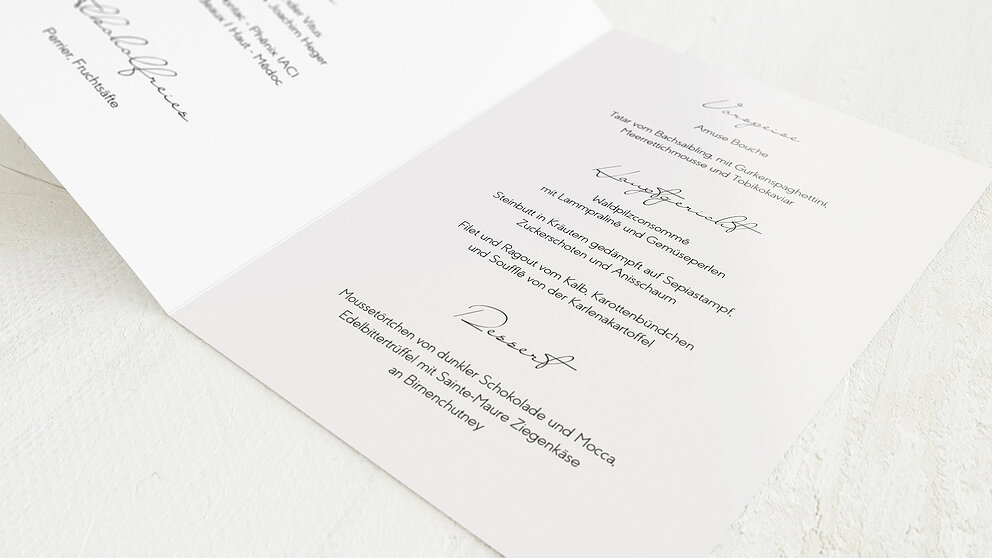 Joachim Heger
Phénix (AC)
Haut - Médoc
Alkoholfreies
Perrier, Fruchtsäfte
Vorspeise
Amuse Bouche
Tatar vom Bachsaibling, mit Gurkenspaghettini,
Meerrettichmousse und Tobikokaviar
Hauptgericht
Waldpilzconsommé
mit Lammpraliné und Gemüseperlen
Steinbutt in Kräutern gedämpft auf Sepiastampf,
Zuckerschoten und Anisschaum
Filet und Ragout vom Kalb, Karottenbündchen
und Soufflé von der Karlenakartoffel
Dessert
Moussetörtchen von dunkler Schokolade und Mocca,
Edelbittertrüffel mit Sainte-Maure Ziegenkäse
an Birnenchutney